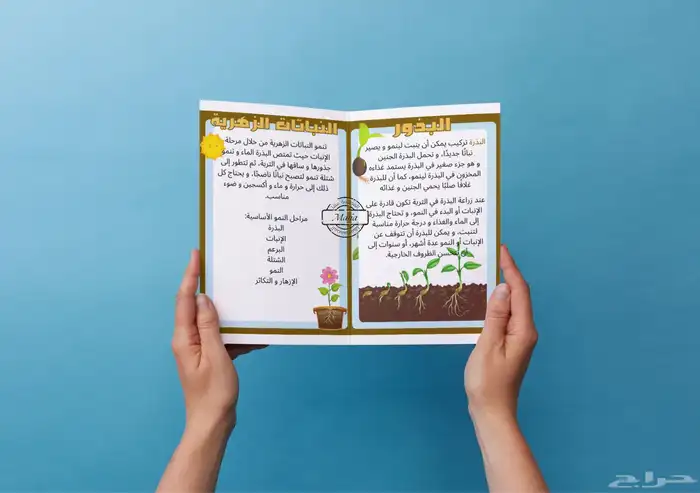 البذور
البذرة تركيب يمكن أن ينبت لينمو و يصير
نباتًا جديدًا، و تحمل البذرة الجنين
و هو جزء صغير في البذرة يستمد غذاءه
المخزون في البذرة لينمو، كما أن للبذرة
غلافًا صلبًا يحمي الجنين و غذائه
عند زراعة البذرة في التربة تكون قادرة على
الإنبات أو البدء في النمو، و تحتاج البذرة
إلى الماء والغذاء و درجة حرارة مناسبة
لتنبت، و يمكن للبذرة أن تتوقف عن
الإنبات أو النمو عدة أشهر، أو سنوات إلى
الظروف الخارجية.
النباتات الزهرية
تنمو النباتات الزهرية من خلال مرحلة
الإنبات حيث تمتص البذرة الماء و تنمو
جذورها و ساقها في التربة، ثم تتطور إلى
شتلة تنمو لتصبح نباتًا ناضجًا، و يحتاج كل
ذلك إلى حرارة و ماء و أكسجين و ضوء
مناسب.
مراحل النمو الأساسية:
البذرة
الإنبات
البرعم
الشتلة
النمو
الإزهار و التكاثر
Maha
حراج